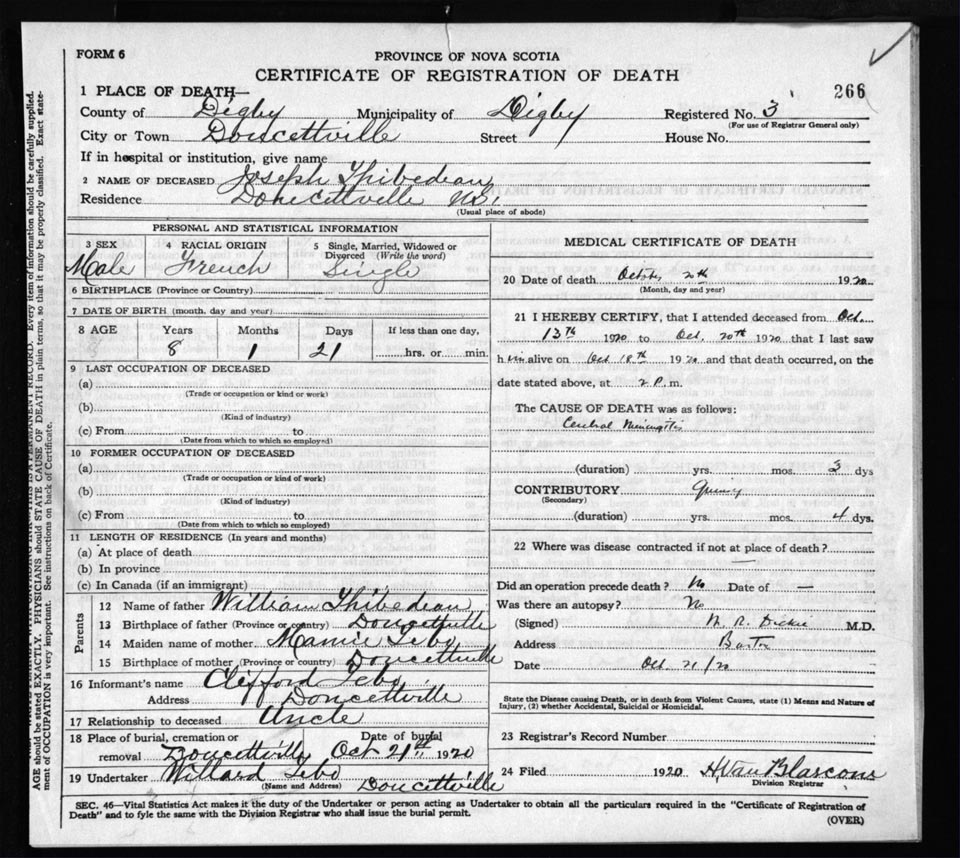 FORM 6
PROVINCE OF NOVA SCOTIA
CERTIFICATE OF REGISTRATION OF DEATH
266
1 PLACE OF DEATH—
County of Digby Municipality of Digby Registered No. 3
(For use of Registrar General only)
City or Town Doucettville Street House No.
If in hospital or institution, give name
2 NAME OF DECEASED Joseph Thibedeau
Residence Doucettville N.S.
(Usual place of abode)
PERSONAL AND STATISTICAL INFORMATION
3 SEX 4 RACIAL ORIGIN 5 Single, Married, Widowed or Divorced (Write the word)
Male French Single
6 BIRTHPLACE (Province or Country)
7 DATE OF BIRTH (month, day and year)
8 AGE Years Months Days If less than one day,
8 1 21 hrs. or min.
9 LAST OCCUPATION OF DECEASED
(a)
(Trade or occupation or kind or work)
(b)
(Kind of industry)
(c) From to
(Date from which to which so employed)
10 FORMER OCCUPATION OF DECEASED
(a)
(Trade or occupation or kind of work)
(b)
(Kind of industry)
(c) From to
(Date from which to which so employed)
11 LENGTH OF RESIDENCE (In years and months)
(a) At place of death
(b) In province
(c) In Canada (if an immigrant)
Parents
12 Name of father William Thibedeau
13 Birthplace of father (Province or country) Doucettville
14 Maiden name of mother Mamie Lebo
15 Birthplace of mother (Province or country) Doucettville
16 Informant's name Clifford Lebo
Address Doucettville
17 Relationship to deceased Uncle
18 Place of burial, cremation or removal Doucettville Date of burial Oct 21st 1920
19 Undertaker Willard Lebo
(Name and Address) Doucettville
MEDICAL CERTIFICATE OF DEATH
20 Date of death October 20th 1920
(Month, day and year)
21 I HEREBY CERTIFY, that I attended deceased from Oct.
13th 1920 to Oct. 20th 1920 that I last saw
him alive on Oct 18th 1920 and that death occurred, on the
date stated above, at 2 P. m.
The CAUSE OF DEATH was as follows:
Meningitis
(duration) yrs. mos. 3 dys
CONTRIBUTORY Quinsy
(Secondary)
(duration) yrs. mos. 4 dys.
22 Where was disease contracted if not at place of death?
—
Did an operation precede death? No Date of —
Was there an autopsy? No
(Signed) W. R. Dickie M.D.
Address Barton
Date Oct 21/20
State the Disease causing Death, or in death from Violent Causes, state (1) Means and Nature of
Injury, (2) whether Accidental, Suicidal or Homicidal.
23 Registrar's Record Number
24 Filed 1920 H Van
Division Registrar
SEC. 46—Vital Statistics Act makes it the duty of the Undertaker or person acting as Undertaker to obtain all the particulars required in the "Certificate of Registration of
Death" and to fyle the same with the Division Registrar who shall issue the burial permit.
(OVER)
IS A PERMANENT RECORD. Every item of information should be carefully supplied.
AGE should be stated EXACTLY. PHYSICIANS should STATE CAUSE OF DEATH in plain terms, so that it may be properly classified. Exact state-
ment of OCCUPATION is very important. See instructions on back of Certificate.